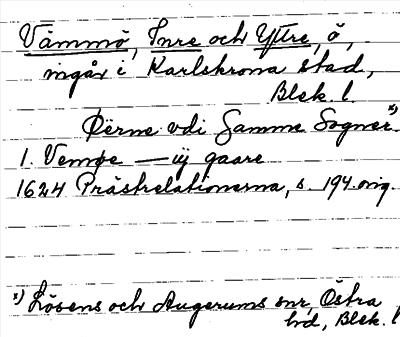 Vämmö, Inre och Yttre, ö,
ingår i Karlskrona stad,
Blek. l.
Øerne vdi Samme Sogner x)
1. Vemøe — iij gaare
1624 Prästrelationerna, s. 194. orig.
x) Lösens och Augerums snr, Östra
hd, Blek. l